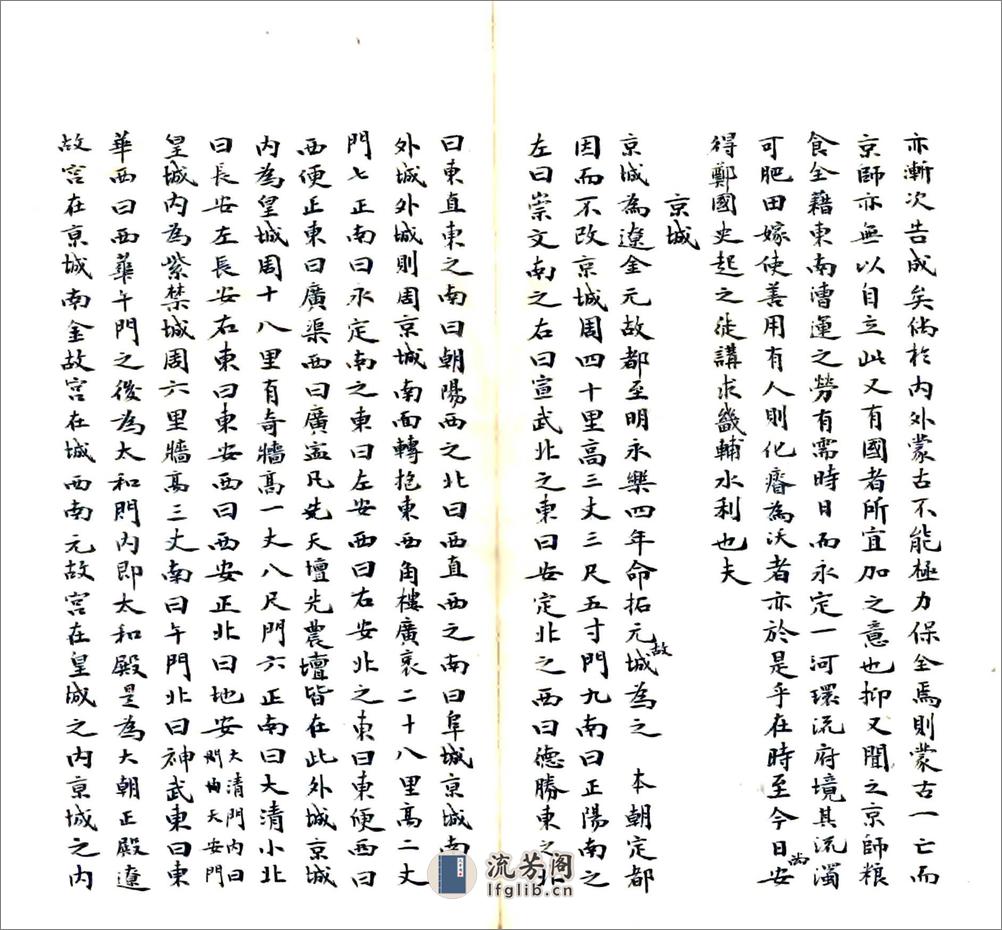 亦漸次告成矣倘於内外蒙古不能極力保全焉則蒙古一亡而
京師亦無以自立此又有國者所宜加之意也抑又聞之京師粮
食全藉東南漕運之勞有需時日而永定一河環流府境其流濁
可肥田嫁使善用有人則化瘠為沃者亦於是乎在時至今日尚安
得鄭國史起之徒講求畿輔水利也夫
京城
京城為遼金元故都至明永樂四年命拓元故城為之　本朝定都
因而不改京城周四十里高三丈三尺五寸門九南曰正陽南之
左曰崇文南之右曰宣武北之東曰安定北之西曰德勝東之北
曰東直東之南曰朝陽西之北曰西直西之南曰阜城京城南
外城外城則周京城南面轉抱東西角樓廣袤二十八里高二丈
門七正南曰永定南之東曰左安西曰右安北之東曰東便西曰
西便正東曰廣渠西曰廣寍凡先天壇先農壇皆在此外城京城
内為皇城周十八里有奇牆高一丈八尺門六正南曰大清小北
曰長安左長安右東曰東安西曰西安正北曰地安大清門内曰天安門
皇城内為紫禁城周六里牆高三丈南曰午門北曰神武東曰東
華西曰西華午門之後為太和門内即太和殿是為大朝正殿遼
故宫在京城南金故宫在城西南元故宫在皇城之内京城之内
流芳阁
lfglib.cn